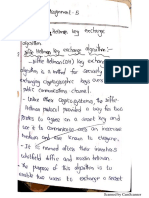 Assignment - 5
Hellman key exchange
algorithm
Diffie Hellman key exchange algorithm :-
- Diffie Hellman (DH) key exchange
algorithm is a method for securely
exchanging cryptographic keys over
public communications channel.
- Unlike other cryptosystems, the Diffie-
Hellman protocol provided a way for two
parties to agree on a secret key and
use it to communicate over an insecure
medium and the key cannot be broken.
- It is named after their inventors
Whitfield diffie and Martin hellman.
The purpose of this algorithm is to
enable two users to exchange a secret
Scanned by CamScanner